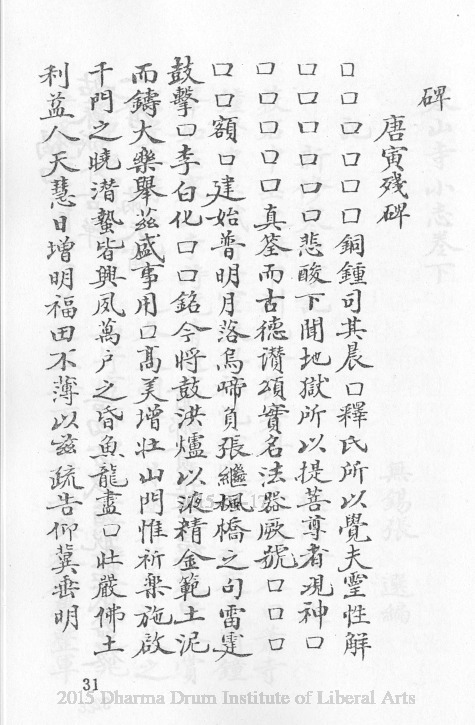 碑
唐寅殘碑
口口口口口口銅鍾司其晨口釋氏所以覺夫靈性解
口口口口口口悲酸下聞地獄所以提菩尊者現神口
口口口口口真筌而古德讚頌實名法器厥號口口口
口口額口建始普明月落烏啼負張繼楓橋之句雷霆
鼓擊口李白化口口銘今將鼓洪爐以液精金範土泥
而鑄大樂舉茲盛事用口高美增壯山門惟祈樂施啟
千門之曉潛蟄皆興夙萬戶之昏魚龍盡口壯嚴佛土
利益人天慧日增明福田不薄以茲疏告仰冀垂明
31
2015 Dharma Drum Institute of Liberal Arts